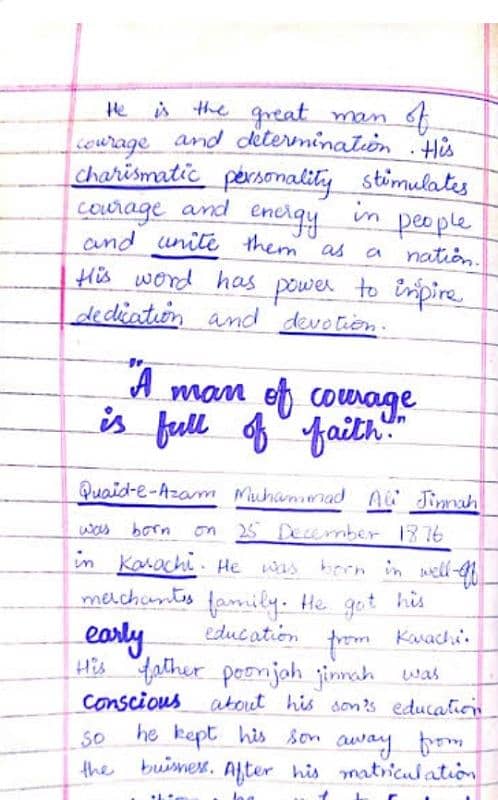 He is the great man of
courage and determination. His
charismatic personality stimulates
courage and energy in people
and unite them as a nation.
His word has power to inspire
dedication and devotion.
"A man of courage
is full of faith."
Quaid-e-Azam Muhammad Ali Jinnah
was born on 25 December 1876
in Karachi. He was born in well-off
merchants family. He got his
early education from Karachi.
His father poonjah jinnah was
conscious about his son's education
so he kept his son away from
the buisness. After his matriculation